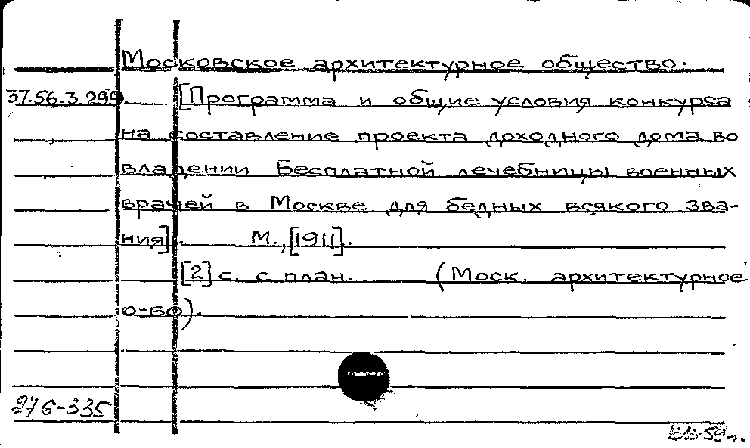 Московское архитектурное общество.
37.56.3.299. [Программа и общие условия конкурса
на составление проекта доходного дома во
владении Бесплатной лечебницы военных
врачей в Москве для бедных всякого зва-
ния]. М., [1911].
[2] с. с план. (Моск. архитектурное
о-во).
276-335